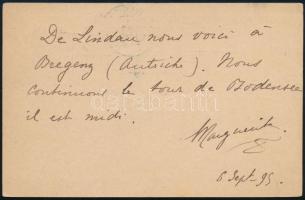 De Lindau nous voici à
Bregenz (Autriche). Nous
continuons le tour de Bodensee
il est midi.
Marguerite
6 Sept-95.
darabanth